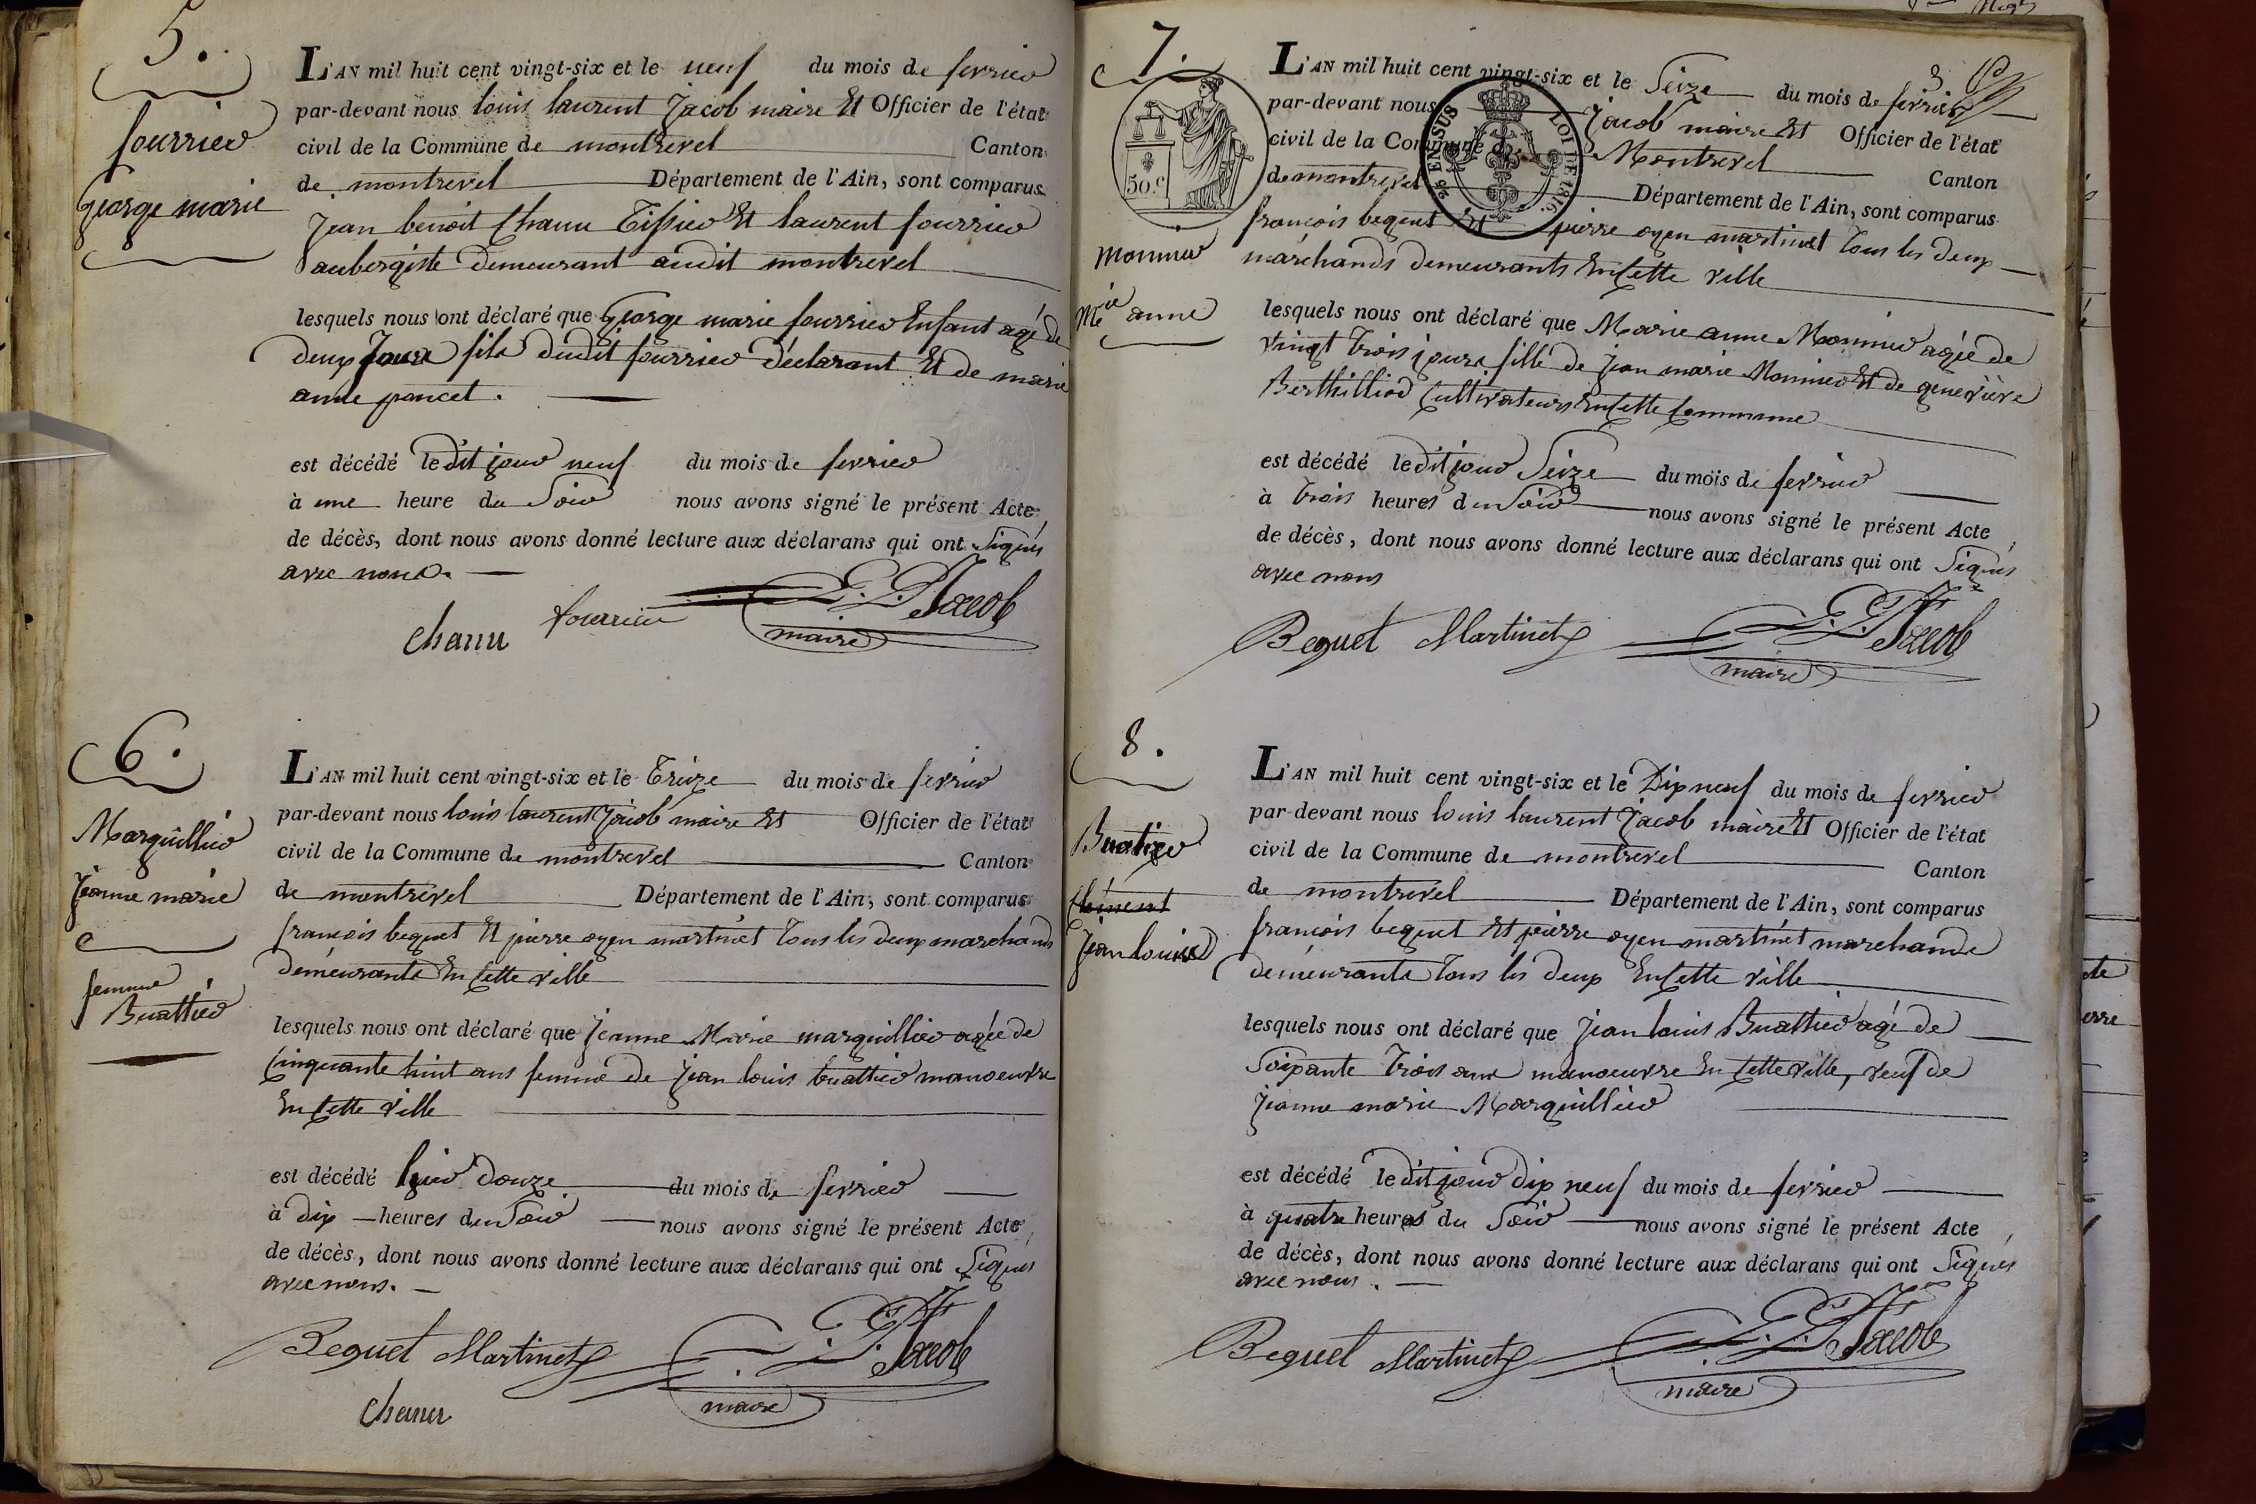 5.
fourrier
George marie
L'AN mil huit cent vingt-six et le neuf du mois de fevrier
par-devant nous louis laurent Jacob maire Et Officier de l'état
civil de la Commune de montrevel Canton
de montrevel Département de l'Ain, sont comparus
jean benoit Chanu Tissier Et laurent fourrier
aubergiste demeurant audit montrevel
lesquels nous ont déclaré que George marie fourrier Enfant agé de
deux jours fils dudit fourrier déclarant Et de marie
anne poncet.
est décédé ledit jour neuf du mois de fevrier
à une heure du Soir nous avons signé le présent Acte
de décès, dont nous avons donné lecture aux déclarans qui ont Signés
avec nous.
Chanu fourrier L. L. Jacob
maire
6.
Marguillier
Jeanne marie
femme
Buattier
L'AN mil huit cent vingt-six et le Treize du mois de fevrier
par-devant nous louis laurent Jacob maire Et Officier de l'état
civil de la Commune de montrevel Canton
de montrevel Département de l'Ain, sont comparus
francois bequet Et pierre oyen martinet Tous les deux marchands
demeurants En Cette ville
lesquels nous ont déclaré que Jeanne Marie marguillier agée de
Cinquante huit ans femme de Jean louis buattier manoeuvre
En Cette ville
est décédé hier douze du mois de fevrier
à dix heures du Soir nous avons signé le présent Acte
de décès, dont nous avons donné lecture aux déclarans qui ont Signés
avec nous.
Bequet Martinet L. L. Jacob
Chanu maire
7.
50.C
25 EN SUS
LOI DE 1816.
Monnier
Mie anne
L'AN mil huit cent vingt-six et le Seize du mois de fevrier
par-devant nous Jacob maire Et Officier de l'état
civil de la Commune de Montrevel Canton
de montrevel Département de l'Ain, sont comparus
francois bequet Et pierre oyen martinet Tous les deux
marchands demeurants En Cette ville
lesquels nous ont déclaré que Marie anne Monnier agée de
vingt Trois jours fille de jean marie Monnier Et de genevieve
Berthilliod Cultivateurs En Cette Commune
est décédé ledit jour Seize du mois de fevrier
à trois heures du Soir nous avons signé le présent Acte
de décès, dont nous avons donné lecture aux déclarans qui ont Signés
avec nous
Bequet Martinet L. L. Jacob
maire
8.
Buattier
Clément
Jean louis
L'AN mil huit cent vingt-six et le Dix neuf du mois de fevrier
par-devant nous louis laurent Jacob maire Et Officier de l'état
civil de la Commune de montrevel Canton
de montrevel Département de l'Ain, sont comparus
francois bequet Et pierre oyen martinet marchands
demeurants Tous les deux En Cette ville
lesquels nous ont déclaré que Jean louis Buattier agé de
Soixante Trois ans manoeuvre En Cette ville, veuf de
Jeanne marie Marguillier
est décédé ledit jour dix neuf du mois de fevrier
à quatre heures du Soir nous avons signé le présent Acte
de décès, dont nous avons donné lecture aux déclarans qui ont Signés
avec nous.
Bequet Martinet L. L. Jacob
maire